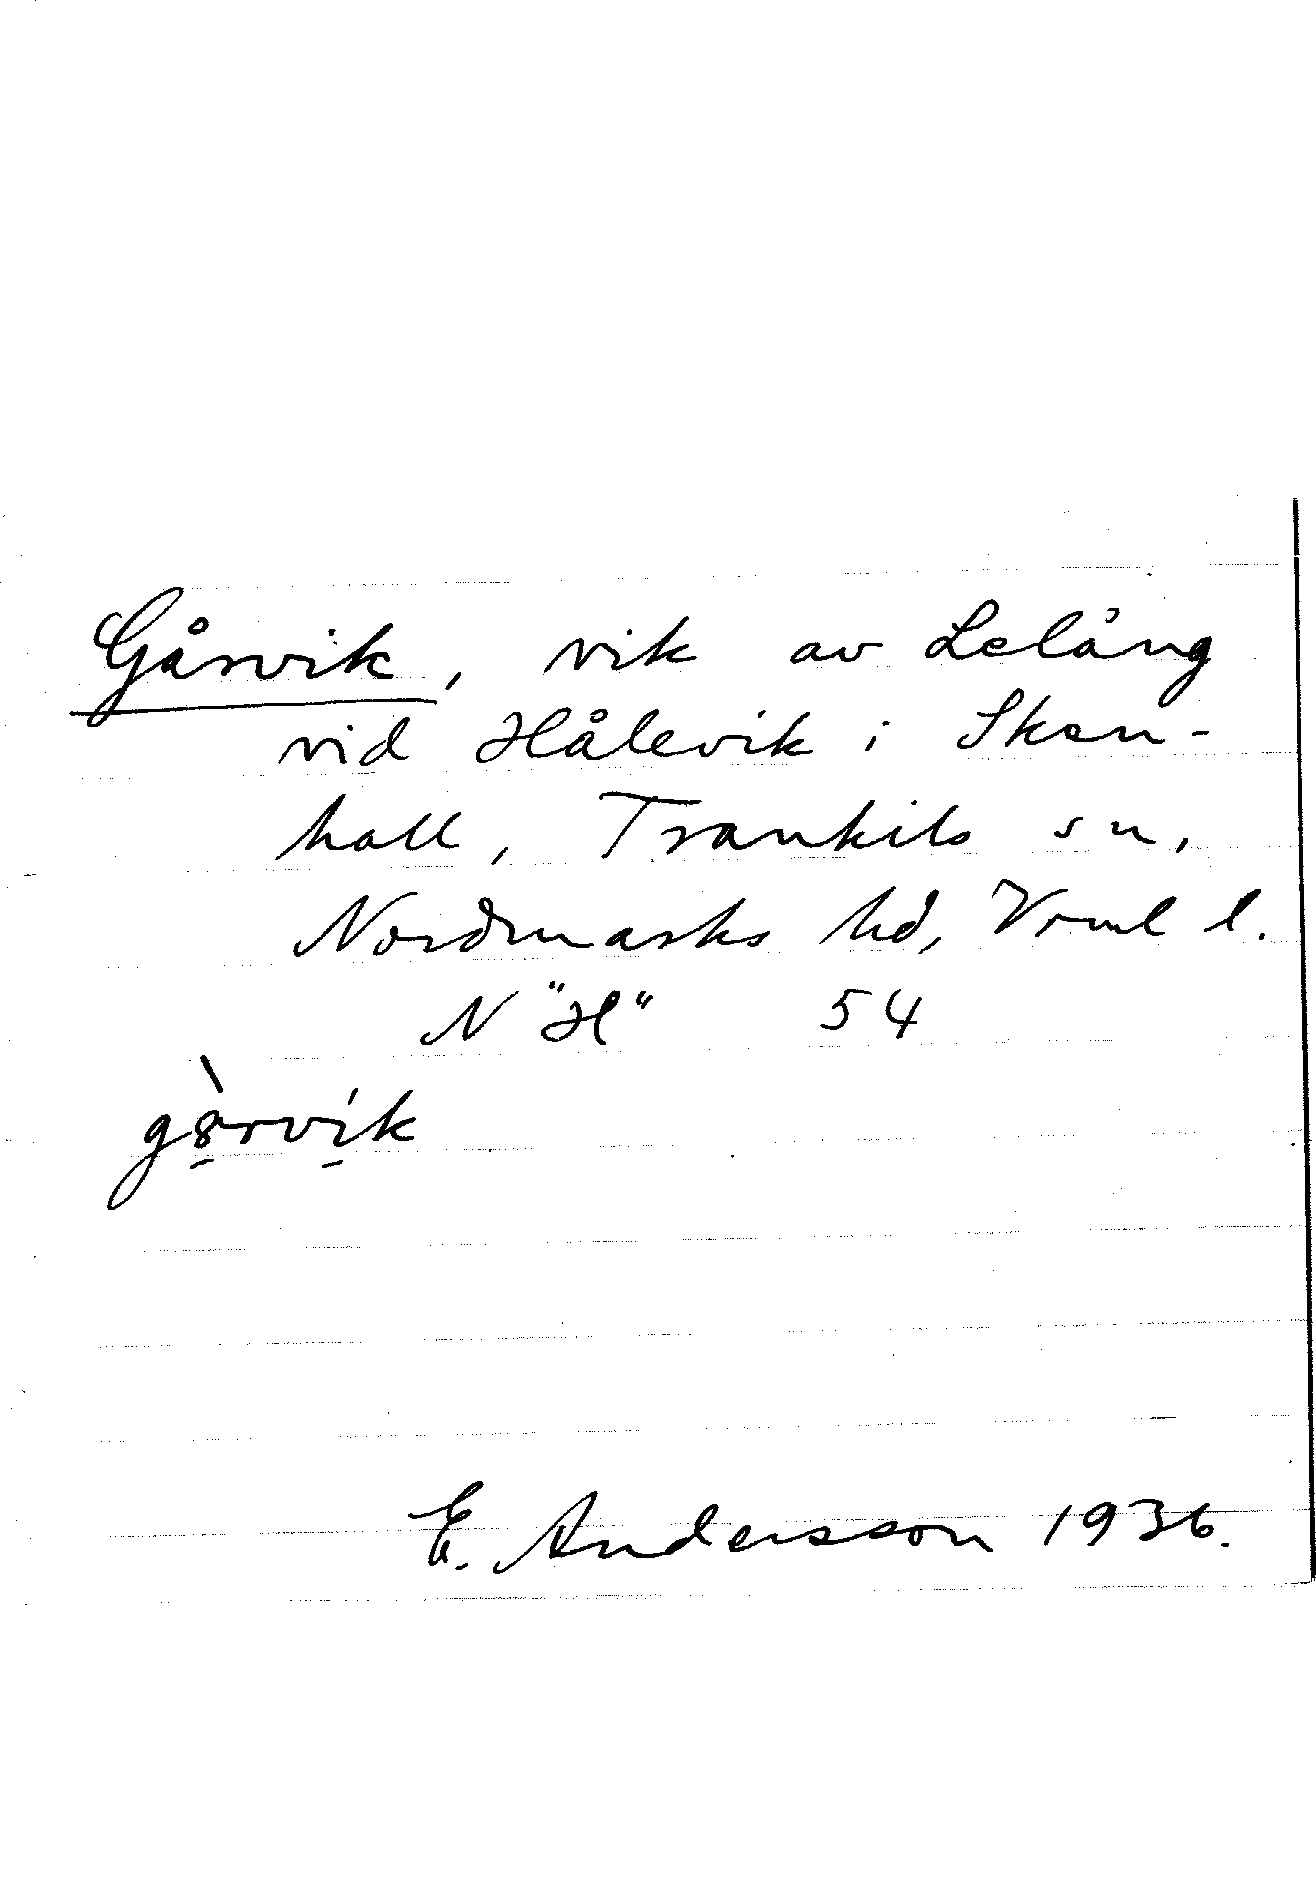 Gårvik, vik av Lelång
vid Hålevik i Sken-
hall, Trankils sn,
Nordmarks hd, Vrml l.
N "H" 54
g8̀rvik
E. Andersson 1936.